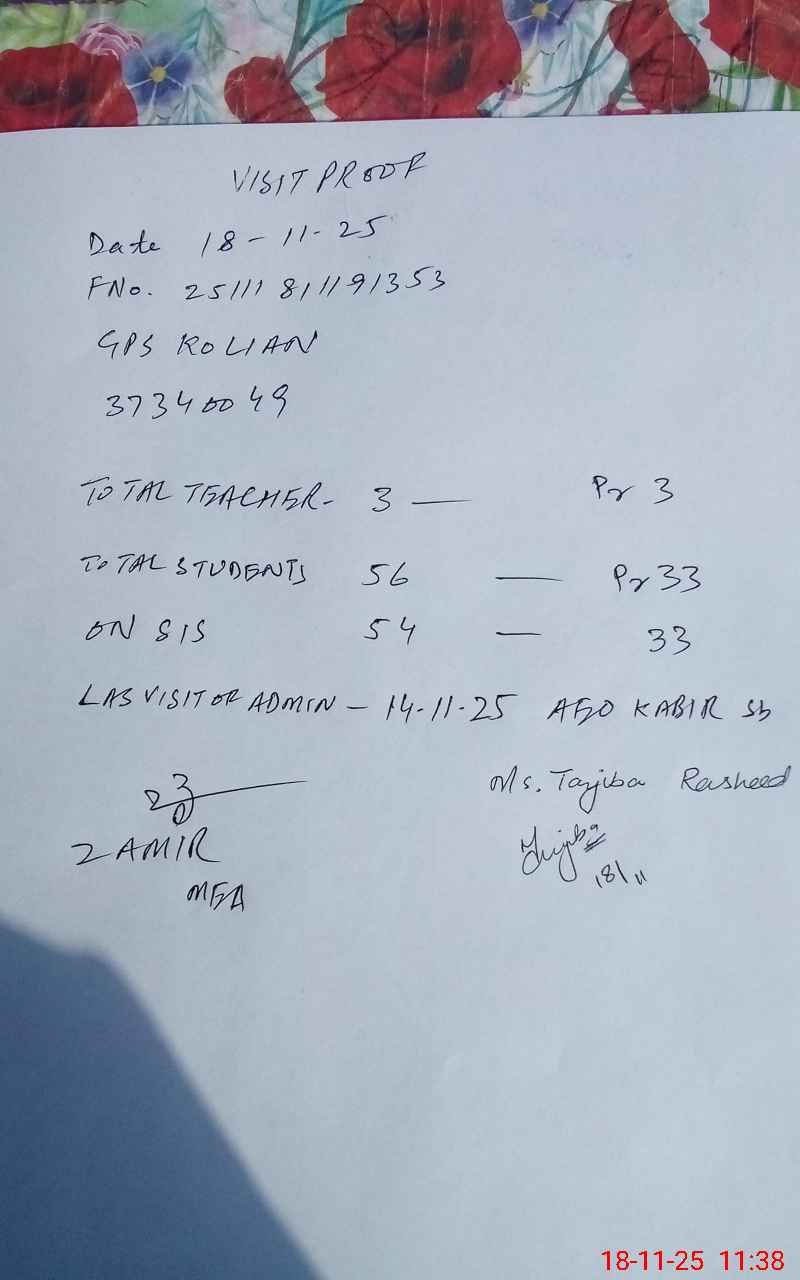 VISIT PROOF
Date 18-11-25
FNo. 251118111191353
GPS KOLIAN
37340049
TOTAL TEACHER- 3 — Pr 3
TOTAL STUDENTS 56 — Pr 33
ON SIS 54 — 33
LAS VISIT OF ADMIN - 14-11-25 AEO KABIR Sb
Ms. Tayiba Rasheed
ZAMIR
18/11
MEA
18-11-25 11:38